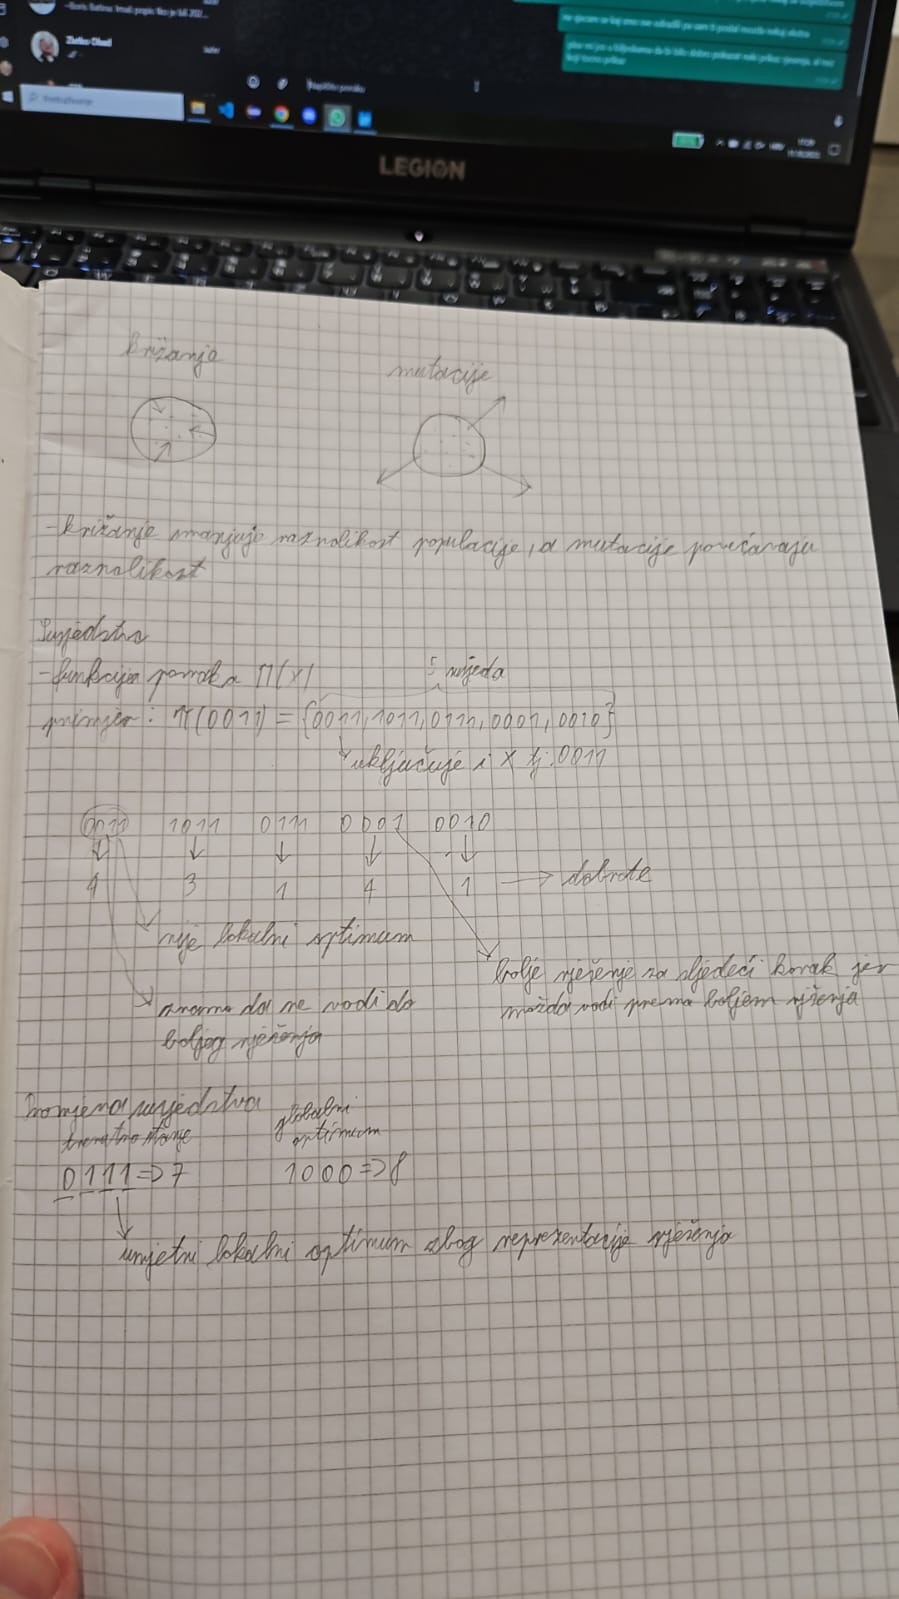 LEGION
križanja
mutacije
-križanje smanjuje raznolikost populacije, a mutacije povećavaju
raznolikost
Susjedstvo
-funkcija pomaka π(x)
5 susjeda
primjer: π(0011) = {0011, 1011, 0111, 0001, 0010}
uključuje i x tj. 0011
0011 1011 0111 0001 0010
4 3 1 4 1 → dobrote
nije lokalni optimum
znamo da ne vodi do
boljeg rješenja
bolje rješenje za sljedeći korak jer
možda vodi prema boljem rješenja
Promjena susjedstva
trenutno stanje
globalni
optimum
0111 => 7 1000 => 8
umjetni lokalni optimum zbog reprezentacije rješenja